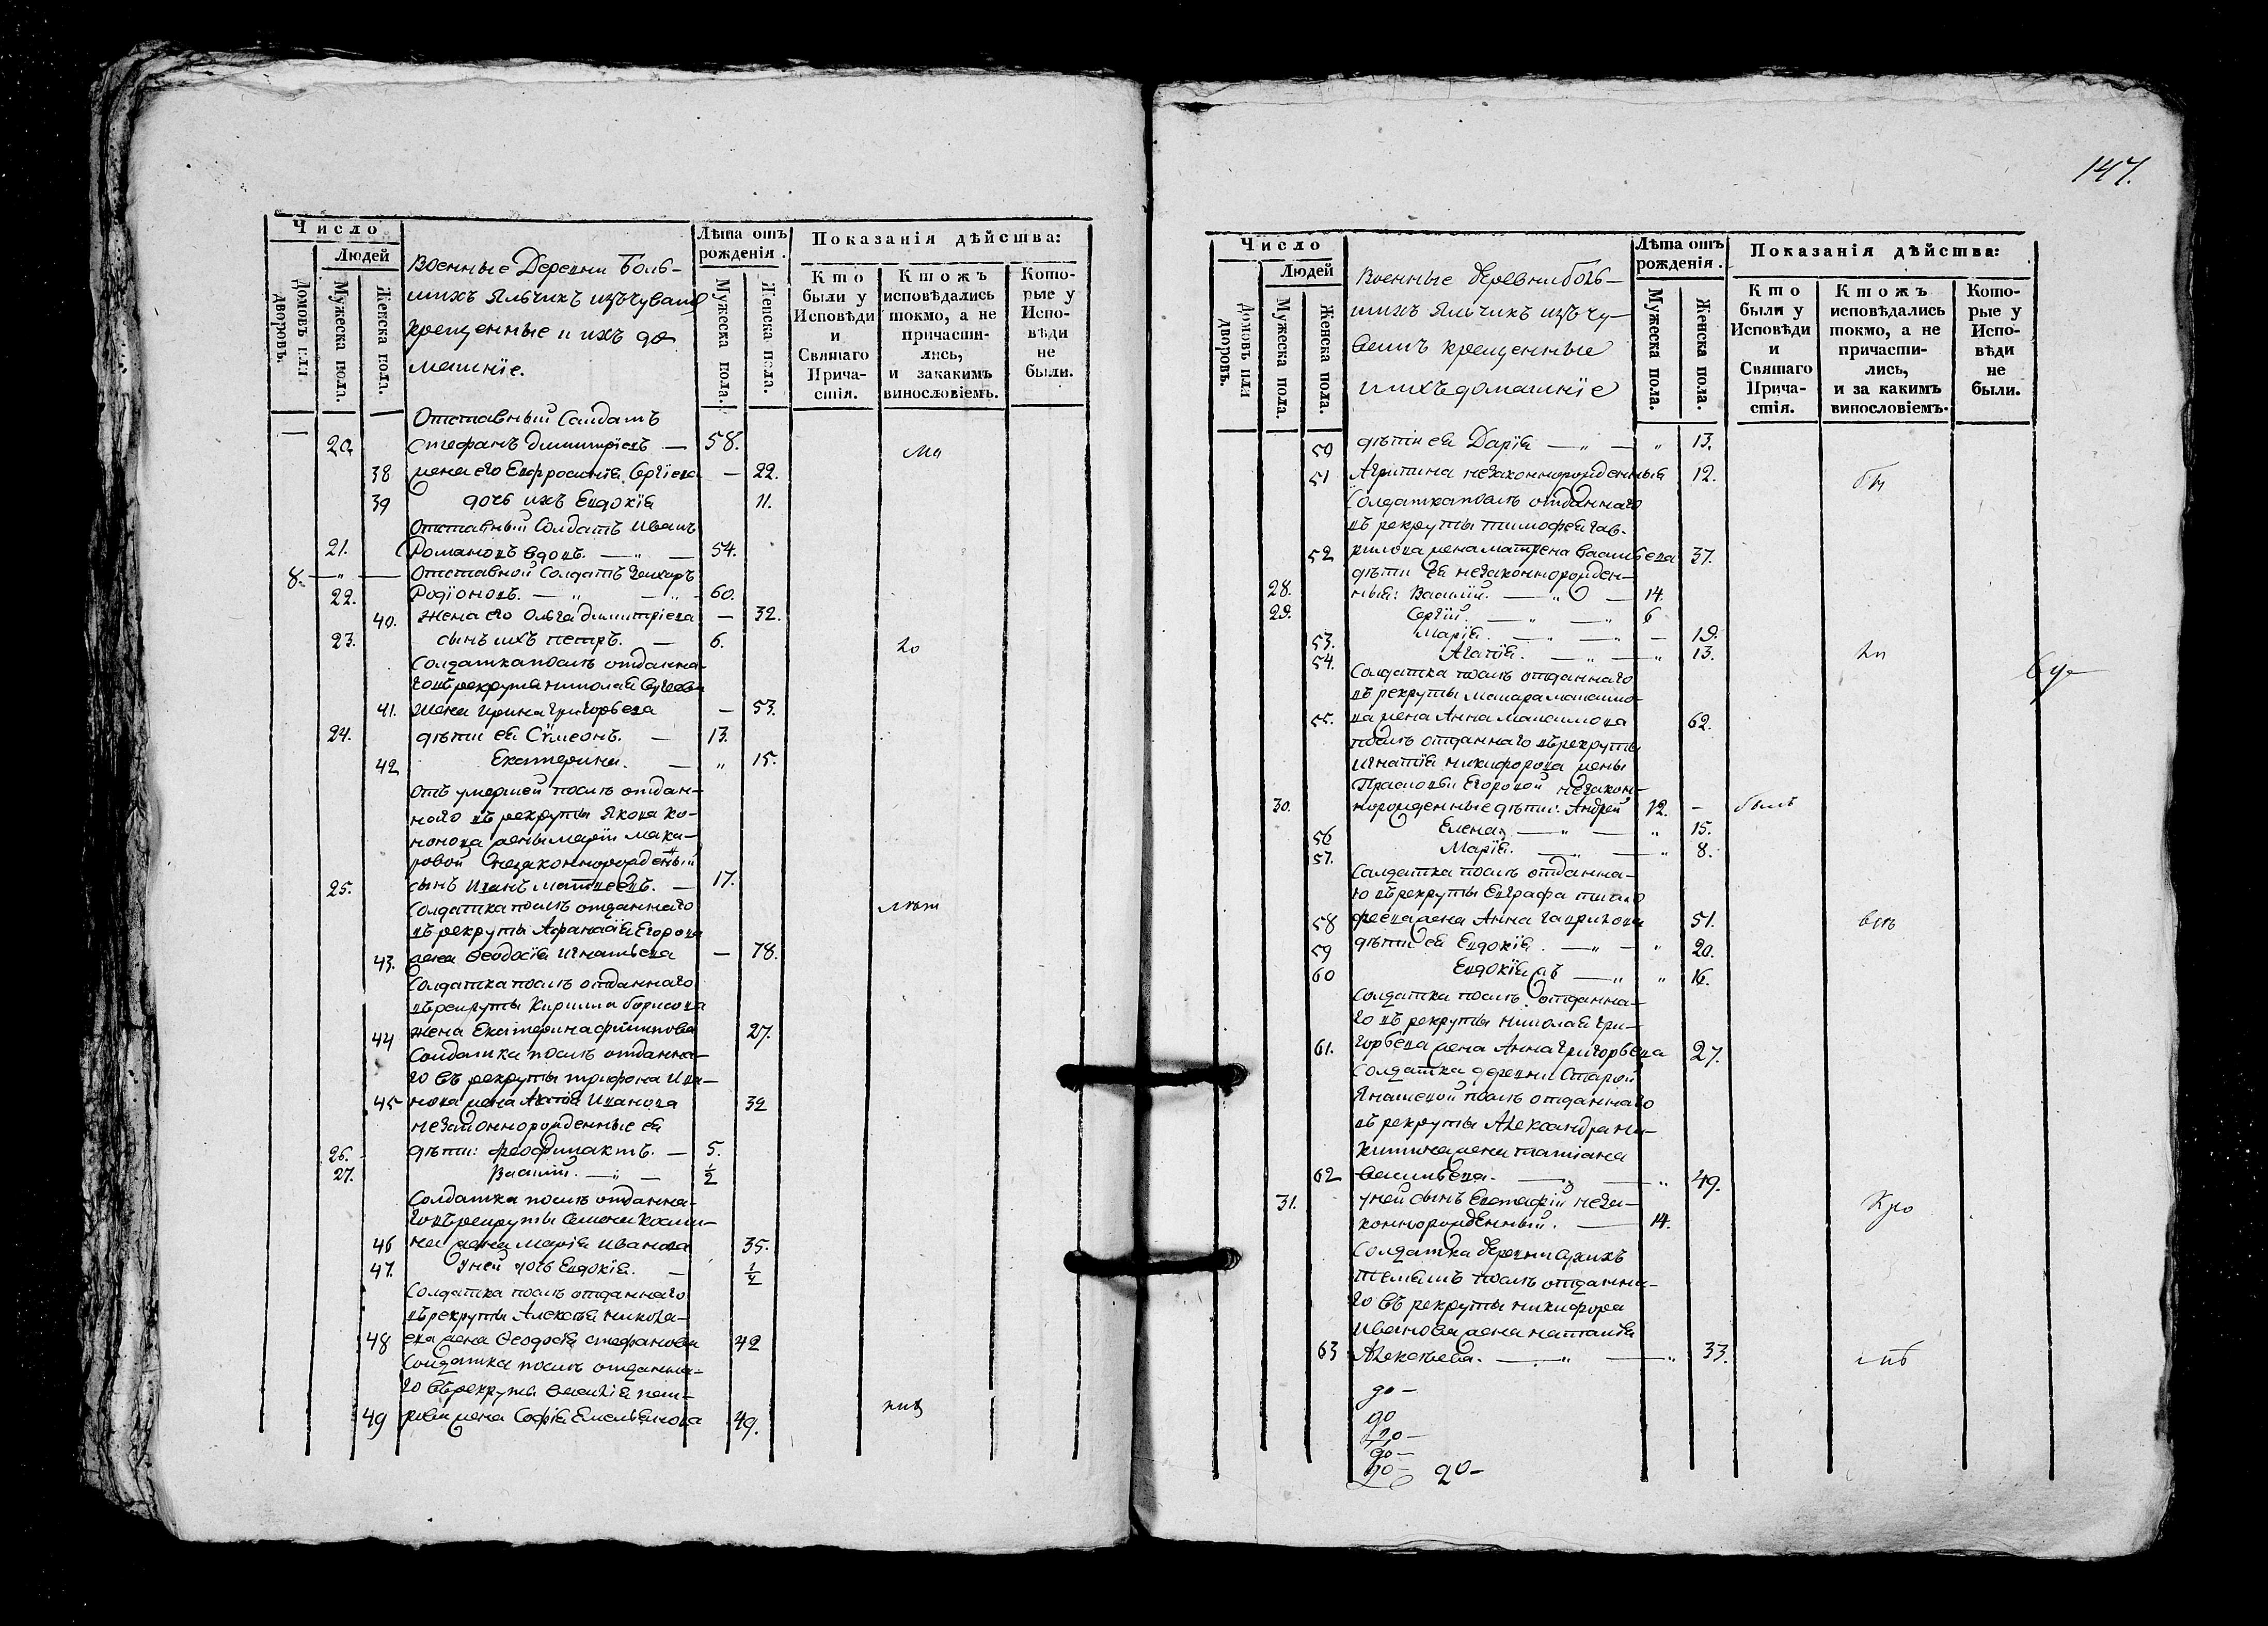 Число
Людей
Домовъ или дворовъ.
Мужеска пола.
Женска пола.
Военные Деревни Боль-
шихъ Яльчикъ изъ чувашъ
крещенные и ихъ до
машнїе.
Лѣта отъ
рожденія.
Мужеска пола.
Женска пола.
Показанія дѣйства:
Кто
были у
Исповѣди
и
Святаго
Прича-
стія.
Ктожъ
исповѣдались
токмо, а не
причасти-
лись,
и закакимъ
винословіемъ.
Кото-
рые у
Испо-
вѣди
не
были.
Отставный Солдатъ
20. Стефанъ Димитрїевъ — 58.
38 жена его Евфросинїя Сергїева — 22.
39 дочь ихъ Евдокїя 11.
Отставный Солдатъ Иванъ
21. Романовъ вдовъ. — „ — 54.
8. — „ — Отставной Солдатъ Захаръ
22. Родїоновъ. — „ — „ — 60.
40. жена его Ольга Димитрїева — 32.
23. сынъ ихъ Петръ. — 6.
Солдатка послѣ отданна-
го въ рекруты Николая Сергѣева
41. жена Ирина Григорьева — 53.
24. дѣти ея Сѵмеонъ. — 13.
42 Екатерина. — „ 15.
Отъ умершей послѣ отдан-
наго въ рекруты Якова Ко-
нонова жены Марїи Мака-
ровой незаконнорожденный
25. сынъ Иванъ Матвеевъ. — 17.
Солдатка послѣ отданнаго
въ рекруты Афанасїя Егорова
43. жена Ѳеодосїя Игнатьева — 78.
Солдатка послѣ отданнаго
въ рекруты Кирилла Борисова
44 жена Екатерина Филиппова 27.
Солдатка послѣ отданна-
го въ рекруты Трифона Ива-
45 нова жена Агафїя Иванова 32
незаконнорожденные ея
26. дѣти: Феофилактъ. — 5.
27. Василїй. — „ — ½
Солдатка послѣ отданна-
го въ рекруты Семена Косми-
46 на жена Марїя Иванова 35.
47. У ней дочь Евдокїя. — ½
Солдатка послѣ отданнаго
въ рекруты Алексѣя Никола-
48 ева жена Ѳеодосїя Стефанова 42
Солдатка послѣ отданна-
го въ рекруты Василїя Пет-
49 рова жена Софїя Емельянова 49.
147.
Число
Людей
Домовъ или дворовъ.
Мужеска пола.
Женска пола.
Военные деревни боль-
шихъ Яльчикъ изъ чу-
вашъ крещенные
и ихъ домашнїе
Лѣта отъ
рожденія.
Мужеска пола.
Женска пола.
Показанія дѣйства:
Кто
были у
Исповѣди
и
Святаго
Прича-
стія.
Ктожъ
исповѣдались
токмо, а не
причасти-
лись,
и за какимъ
винословіемъ.
Кото-
рые у
Испо-
вѣди
не
были.
50 дѣти ея Дарїя — „ — „ 13.
51 Агрипина незаконнорожденныя 12.
Солдатка послѣ отданнаго
въ рекруты Тимофея Гав-
52 рилова жена Матрена Васильева 37.
дѣти ея незаконнорожден-
28. ныя: Василїй. — „ — 14.
29. Сергїй. — „ — „ 6
53. Марїя. — „ — „ — 19.
54. Агафїя. — „ — „ 13.
Солдатка послѣ отданнаго
въ рекруты Макара Максимо-
55. ва жена Анна Максимова 62.
послѣ отданнаго въ рекруты
Игнатїя Никифорова жены
Прасковьи Егоровой незакон-
30. норожденные дѣти: Андрей 12. — былъ
56 Елена — „ — „ 15.
57. Марїя. — „ — „ 8.
Солдатка послѣ отданна-
го въ рекруты Евграфа Тимо
58 феева жена Анна Гаврилова 51.
59 дѣти ея Евдокїя. — „ — „ 20.
60 Евдокїя жъ — „ „ 16.
Солдатка послѣ отданна-
го въ рекруты Николая Гри-
61. горьева жена Анна Григорьева 27.
Солдатка деревни Старой
Янашевой послѣ отданнаго
въ рекруты Александра Ни-
китина жена Татїана
62 Васильева. — „ — „ 49.
31. У ней сынъ Евстафїй неза-
коннорожденный. — 14.
Солдатка деревни Сухихъ
Темяшъ послѣ отданна-
го въ рекруты Никифора
Иванова жена Наталїя
63 Алексѣева. — „ — „ 33.
до —
до
до —
до —
до — до —